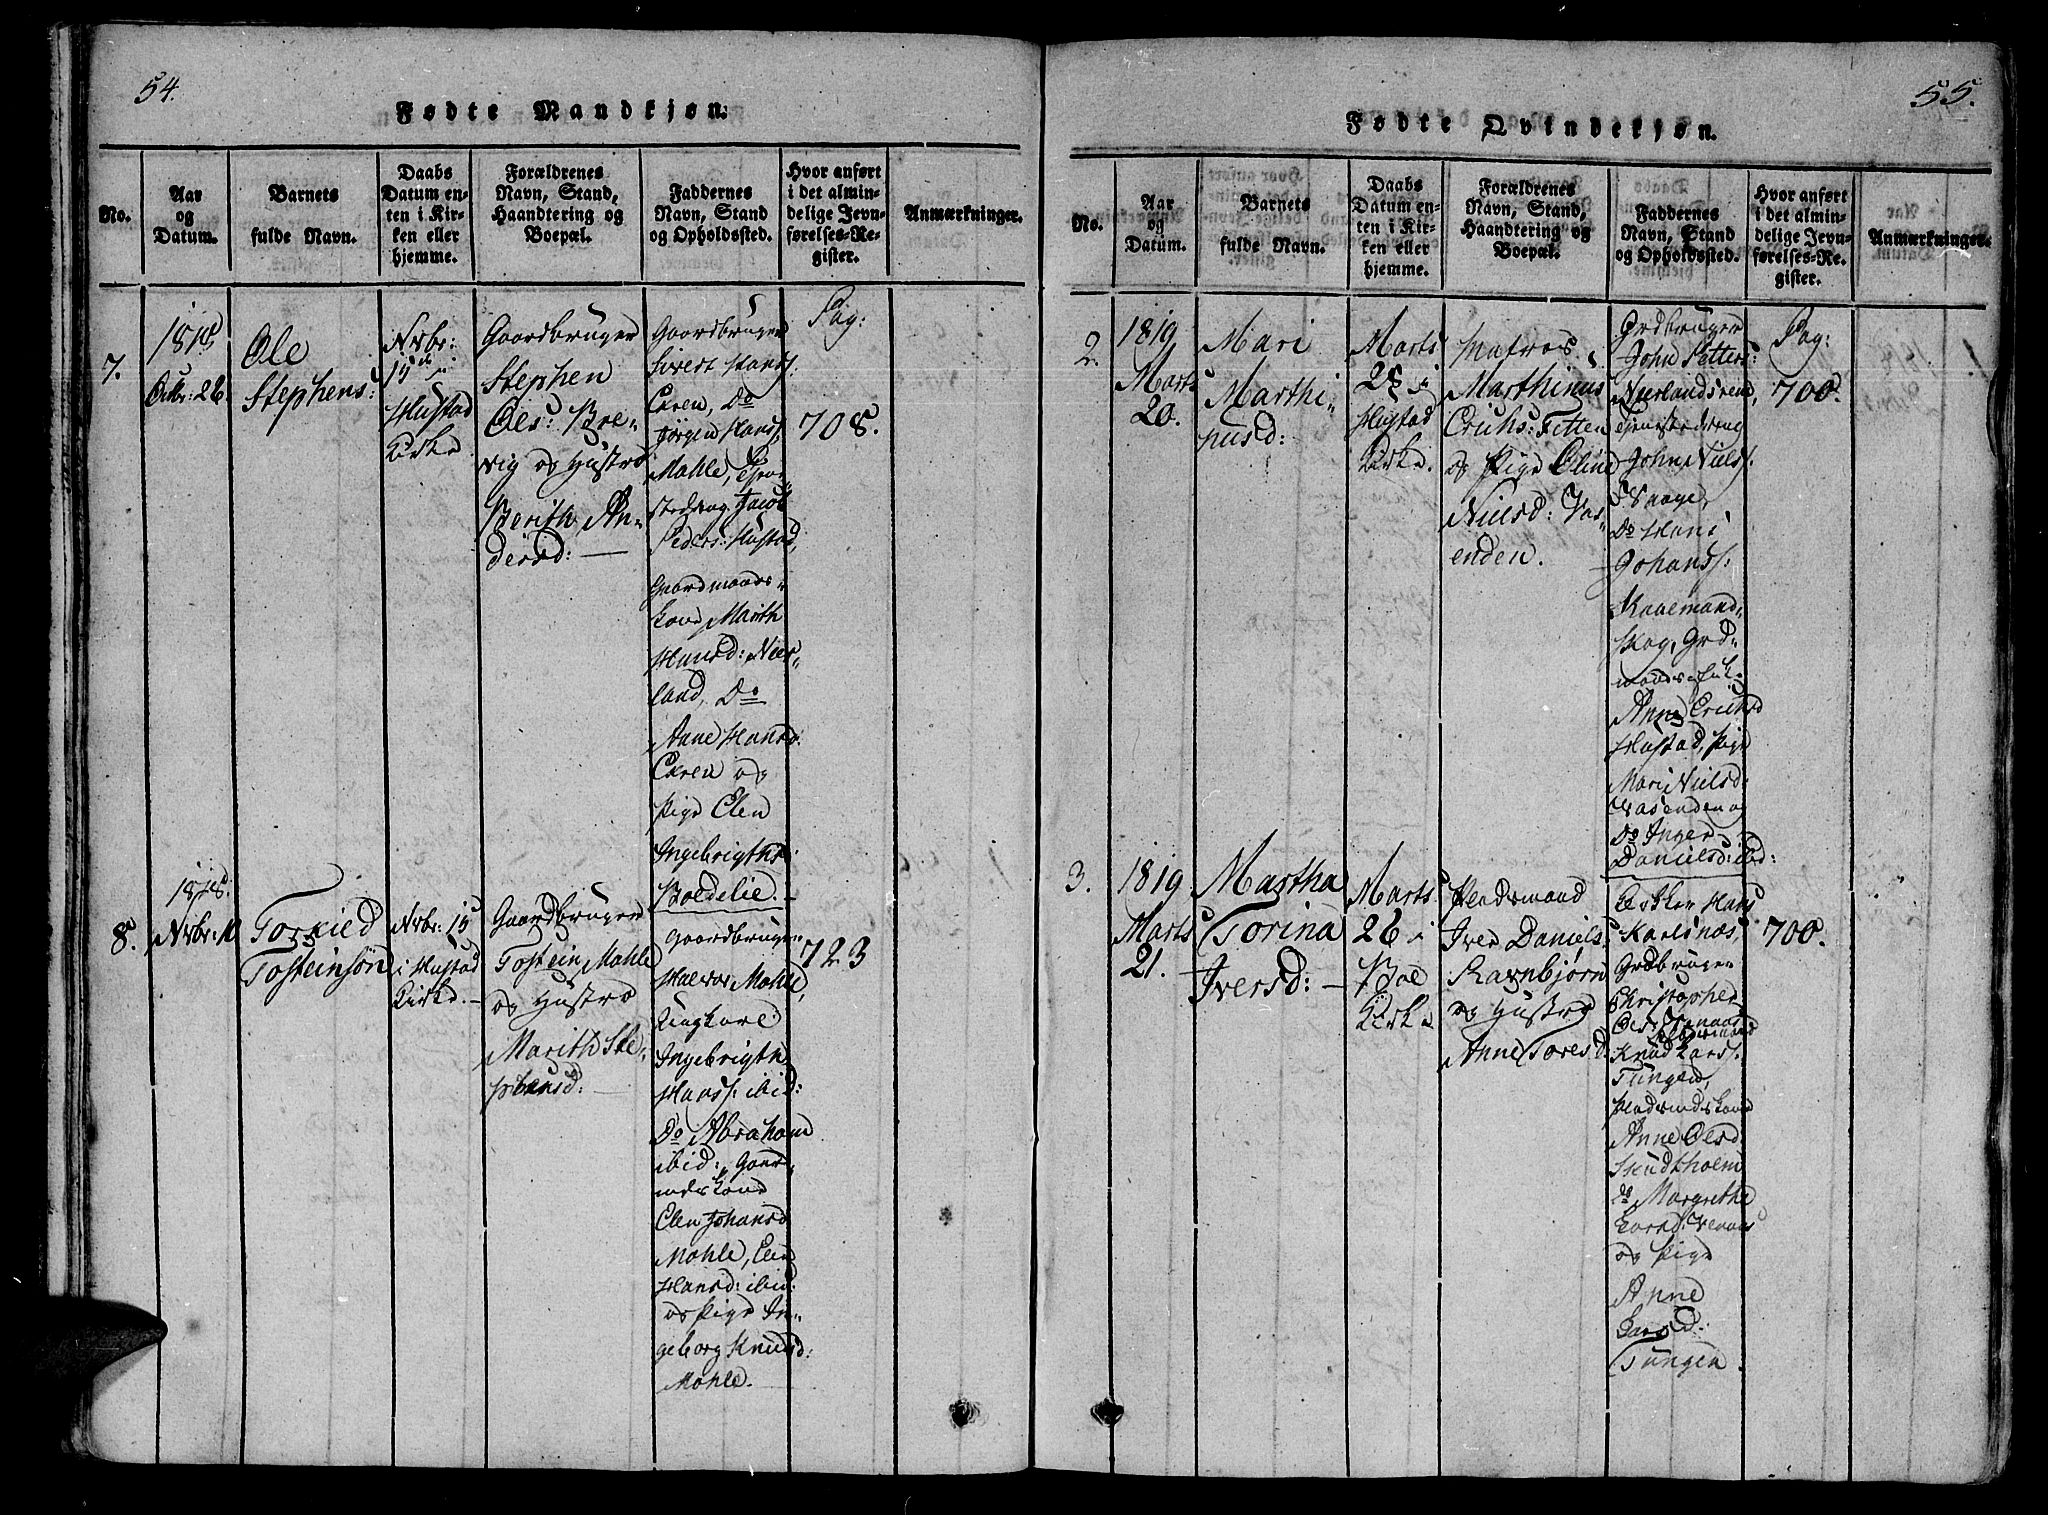 54.
Fødte Mandkjøn.
No.
Aar
og
Datum.
Barnets
fulde Navn.
Daabs
Datum en-
ten i Kir-
ken eller
hjemme.
Forældrenes
Navn, Stand,
Haandtering og
Boepæl.
Faddernes
Navn, Stand
og Opholdssted.
Hvor anført
i det almin-
delige Jevn-
førelses-Re-
gister.
Anmærkninger.
7.
1818
Octbr: 26.
Ole
Stephens:
Nvbr:
15de i
Hustad
Kirke
Gaardbruger
Stephen
Oles: Bre-
vig og Hustro
Berith An-
dersd:
Gaardbruger
Sivert Hans:
Caren, Do
Jørgen Hans:
Mahle,
Jacob
Peders: Hustad,
Gaardmands-
kone Marth
Hansd: Nier-
land, Do
Anne Hansd:
Caren og
Pige Elen
Ingebrigths:
Boldelie.
Pag:
708.
8.
1818.
Nvbr: 10
Torkied
Tosteinsøn
Nvbr: 15
i Hustad
Kirke.
Gaardbruger
Tostein Mahle
og Hustro
Marith Ste-
phensd:
Gaardbruger
Halvor Mahle,
Ungkarl
Ingebrigth
Hanss: ibid:
Do Abraham
ibid: Gaard-
mdskone
Elen Johansd
Mahle, Elen
Hansd: ibid:
og Pige In-
geborg Knudsd:
Mahle.
723
55.
Fødte Qvindekjøn.
No.
Aar
og
Datum.
Barnets
fulde Navn.
Daabs
Datum en-
ten i Kir-
ken eller
hjemme.
Forældrenes
Navn, Stand,
Haandtering og
Boepæl.
Faddernes
Navn, Stand
og Opholdssted.
Hvor anført
i det almin-
delige Jevn-
førelses-Re-
gister.
Anmærkninger.
2.
1819
Marts
20.
Mari
Marthi-
nusd:
Marts
25 i
Hustad
Kirke.
Matros
Marthinus
Erichs: Fetten
og Pige Oline
Nielsd: Vas-
enden.
Grdbruger
John Petters:
Nierlandsreme,
Tjenestedreng
John Niels:
Do Hans
Johans:
Skog, Grd-
mands
Anne Erichsd
Hustad, Pige
Mari Nielsd:
Vasenden og
Do Inger
Danielsd: ibd:
Pag:
700.
3.
1819
Marts
21.
Martha
Torina
Iversd:
Marts
26 i
Boe
Kirke
Pladsmand
Iver Daniels:
Ravnbjørn
og Hustro
Anne Toresd.
Hans
Karlsnæs,
Grdbruger
Christopher
Knud Lars:
Tungen,
Pladsmdskone
Anne Olesd:
Skudtholm
do Margrethe
Larsd:
og Pige
Anne
Larsd:
Tungen.
700.